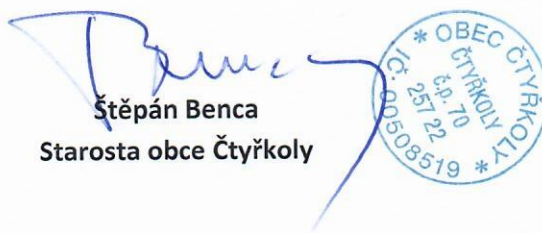 Benca
Štěpán Benca
Starosta obce Čtyřkoly
* OBEC ČTYŘKOLY *
IČ. 00508519
ČTYŘKOLY
č.p. 70
257 22